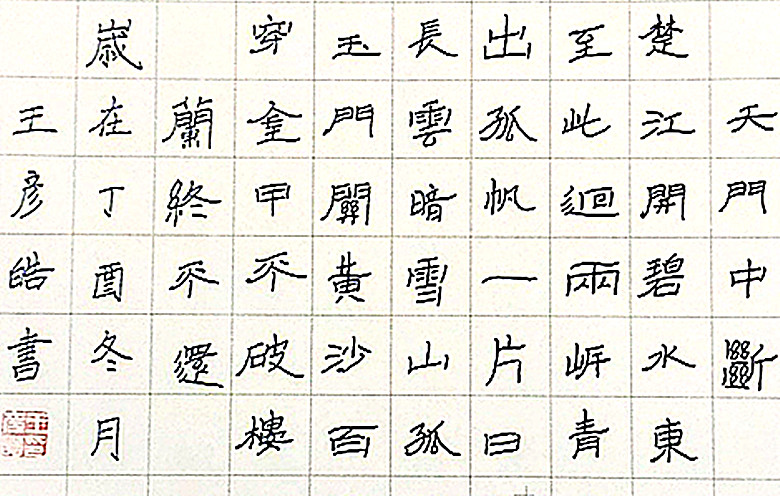 天門中斷
楚江開碧水東
至此迴兩岸青
出孤帆一片日
長雲暗雪山孤
玉門關黃沙百
穿金甲不破樓
蘭終不還
歲在丁酉冬月
王彥皓書